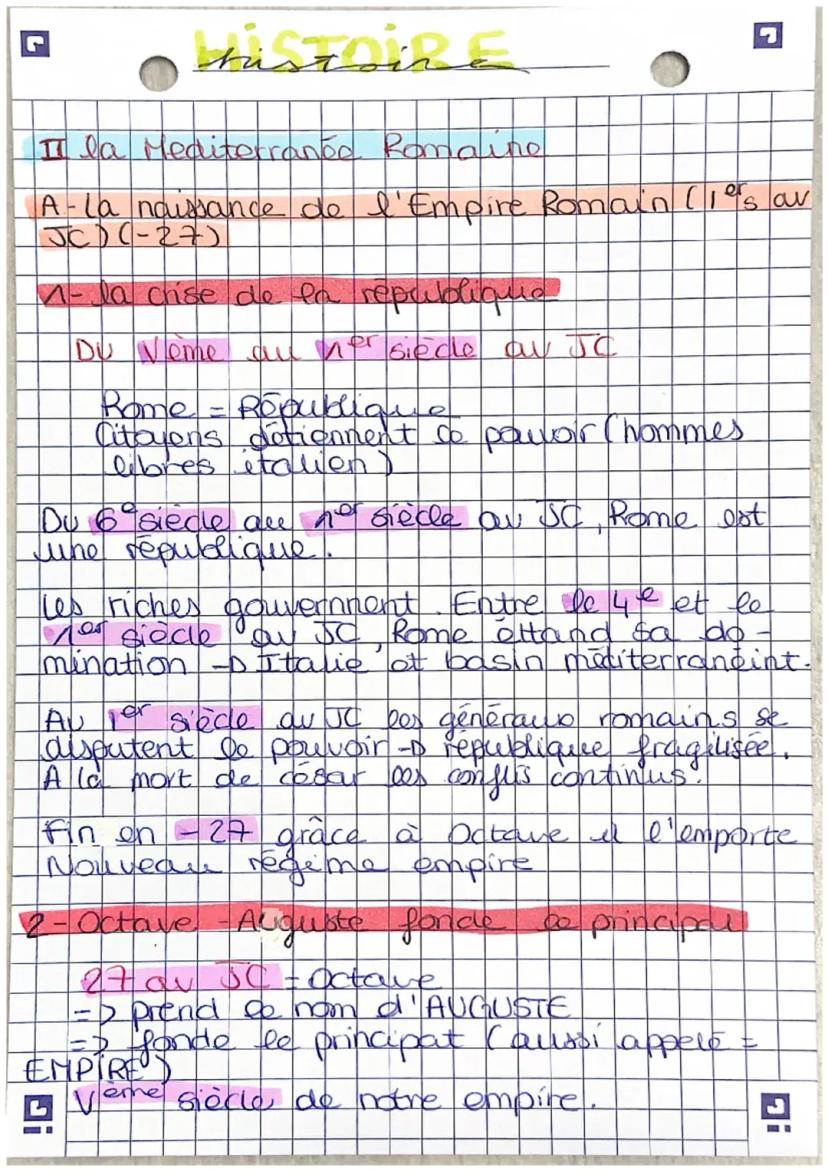 HiSTOiRE
Histoire
II la Mediterranée Romaine
A-la naissance de l'Empire Romain (1ers av
JC) (-27)
1- la crise de la république
Du Vème au 1er siècle av JC
Rome = République
Citoyens détiennent le pouvoir (hommes
libres italien)
Du 6e siècle au 1er siècle av JC, Rome est
une république.
Les riches gouvernnent. Entre le 4e et le
1er siècle av JC, Rome éttand sa do-
mination -D Italie et basin méditerranéint.
Au 1er siècle av JC les généraux romains se
disputent le pouvoir -D république fragilisée.
A la mort de césar les conflis continus.
Fin en -27 grâce à Octave il l'emporte
Nouveau régime empire
2-Octave -Auguste fonde le principau
27 av JC = Octave
=> prend le nom d'AUGUSTE
=> fonde le principat (aussi appelé =
EMPIRE)
Vème siècle de notre empire.